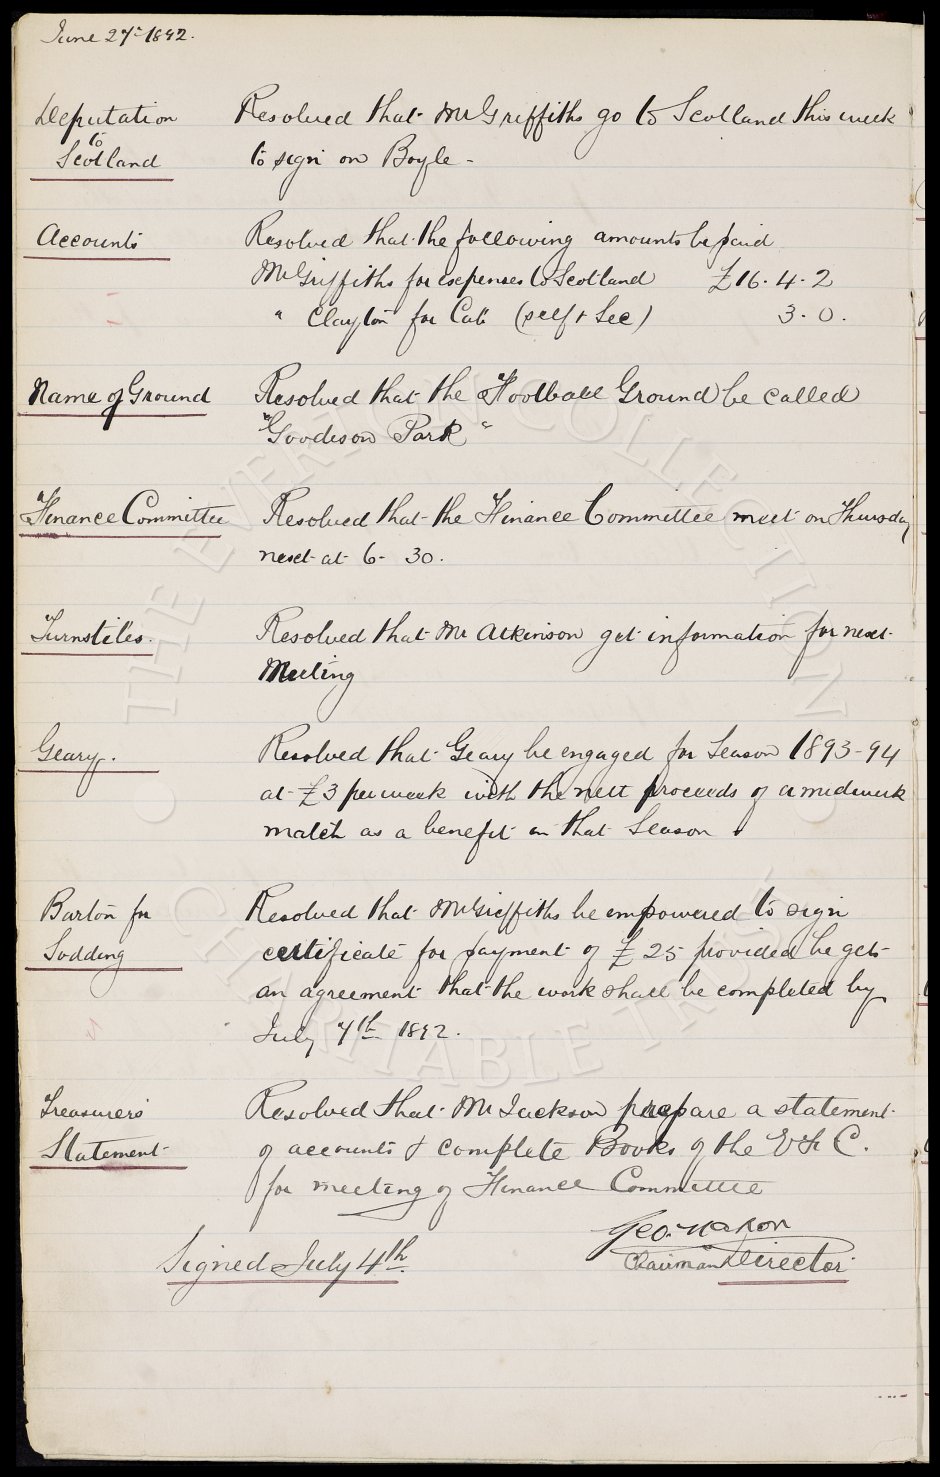 June 27th 1892.
Deputation
to
Scotland
Resolved that Mr Griffiths go to Scotland this week
to sign on Boyle -
Accounts
Resolved that the following amounts be paid
Mr Griffiths for expenses to Scotland £16.4.2
" Clayton for Cab (self & Sec) 3.0.
Name of Ground
Resolved that the Football Ground be called
"Goodison Park"
Finance Committee
Resolved that the Finance Committee meet on Thursday
next at 6-30.
Turnstiles.
Resolved that Mr Atkinson get information for next
Meeting
Geary.
Resolved that Geary be engaged for Season 1893-94
at £3 per week with the nett proceeds of a midweek
match as a benefit in that Season.
Barton for
Sodding
Resolved that Mr Griffiths be empowered to sign
certificate for payment of £25 provided he gets
an agreement that the work shall be completed by
July 7th 1892.
Treasurers
Statement
Resolved that Mr Jackson prepare a statement
of accounts & complete Books of the E F C.
for meeting of Finance Committee
Geo. Mahon
Signed July 4th
Chairman Director
© THE EVERTON COLLECTION
CHARITABLE TRUST